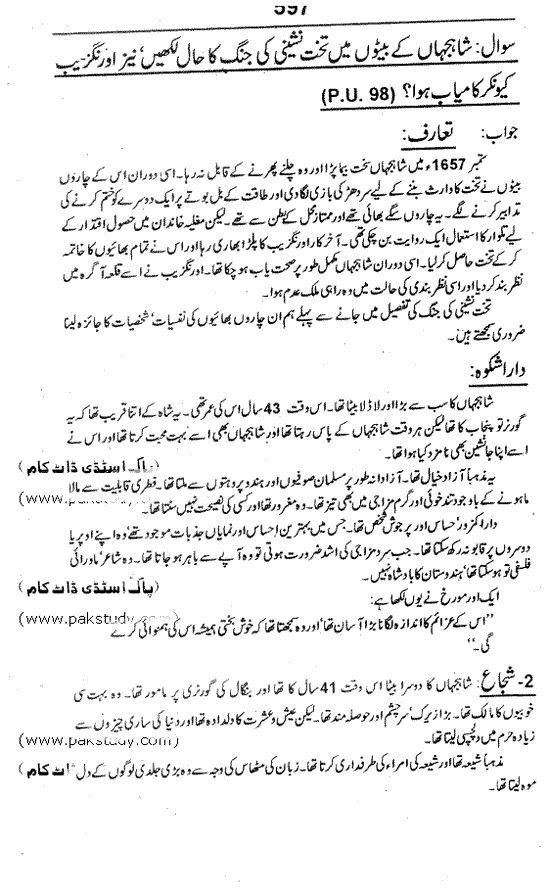 597
سوال: شاہجہاں کے بیٹوں میں تخت نشینی کی جنگ کا حال لکھیں، نیز اورنگزیب
کیونکر کامیاب ہوا؟ (P.U. 98)
جواب: تعارف:
ستمبر 1657ء میں شاہجہاں سخت بیمار پڑا اور وہ چلنے پھرنے کے قابل نہ رہا۔ اسی دوران اس کے چاروں
بیٹوں نے تخت کا وارث بننے کے لیے سردھڑ کی بازی لگا دی اور طاقت کے بل بوتے پر ایک دوسرے کو ختم کرنے کی
تدابیر کرنے لگے۔ یہ چاروں سگے بھائی تھے اور ممتاز محل کے بطن سے تھے۔ لیکن مغلیہ خاندان میں حصول اقتدار کے
لیے تلوار کا استعمال ایک روایت بن چکی تھی۔ آخر کار اورنگزیب کا پلڑا بھاری رہا اور اس نے تمام بھائیوں کا خاتمہ
کر کے تخت حاصل کر لیا۔ اسی دوران شاہجہاں مکمل طور پر صحت یاب ہو چکا تھا۔ اورنگزیب نے اسے قلعہ آگرہ میں
نظر بند کر دیا اور اسی نظر بندی کی حالت میں وہ راہی ملک عدم ہوا۔
تخت نشینی کی جنگ کی تفصیل میں جانے سے پہلے ہم ان چاروں بھائیوں کی نفسیات، شخصیات کا جائزہ لینا
ضروری سمجھتے ہیں۔
دارا شکوہ:
شاہجہاں کا سب سے بڑا اور لاڈلا بیٹا تھا۔ اس وقت 43 سال اس کی عمر تھی۔ یہ شاہ کے اتنا قریب تھا کہ یہ
گورنر تو پنجاب کا تھا لیکن ہر وقت شاہجہاں کے پاس رہتا تھا اور شاہجہاں بھی اسے بہت محبت کرتا تھا اور اس نے
اسے اپنا جانشین بھی نامزد کیا ہوا تھا۔ (پاک اسٹڈی ڈاٹ کام)
یہ مذہباً آزاد خیال تھا۔ آزادانہ طور پر مسلمان صوفیوں اور ہندو پروہتوں سے ملتا تھا۔ فطری قابلیت سے مالا
مالا ہونے کے باوجود تندخوئی اور گرم مزاجی میں بھی تیز تھا۔ وہ مغرور تھا اور کسی کی نصیحت نہیں سنتا تھا۔ (www.pakstudy.com)
دارا کمزور، حساس اور پر جوش شخص تھا۔ جس میں بہترین احساس اور نمایاں جذبات موجود تھے وہ اپنے اوپر یا
دوسروں پر قابو نہ رکھ سکتا تھا۔ جب سرد مزاجی کی اشد ضرورت ہوتی تو وہ آپے سے باہر ہو جاتا تھا۔ وہ شاعر، ماورائی
فلسفی تو ہو سکتا تھا، ہندوستان کا بادشاہ نہیں۔ (پاک اسٹڈی ڈاٹ کام)
ایک اور مورخ نے یوں لکھا ہے:
"اس کے عزائم کا اندازہ لگانا بڑا آسان تھا، اور وہ سمجھتا تھا کہ خوش بختی ہمیشہ اس کی ہمنوائی کرے (www.pakstudy.com)
گی۔"
2- شجاع: شاہجہاں کا دوسرا بیٹا اس وقت 41 سال کا تھا اور بنگال کی گورنری پر مامور تھا۔ وہ بہت سی
خوبیوں کا مالک تھا۔ بڑا زیرک، سرچشم اور حوصلہ مند تھا۔ لیکن عیش و عشرت کا دلدادہ تھا اور دنیا کی ساری چیزوں سے
زیادہ حرم میں دلچسپی لیتا تھا۔ (www.pakstudy.com)
مذہباً شیعہ تھا اور شیعہ کی امراء کی طرفداری کرتا تھا۔ زبان کی مٹھاس کی وجہ سے وہ بڑی جلدی لوگوں کے دل ڈاٹ کام)
موہ لیتا تھا۔